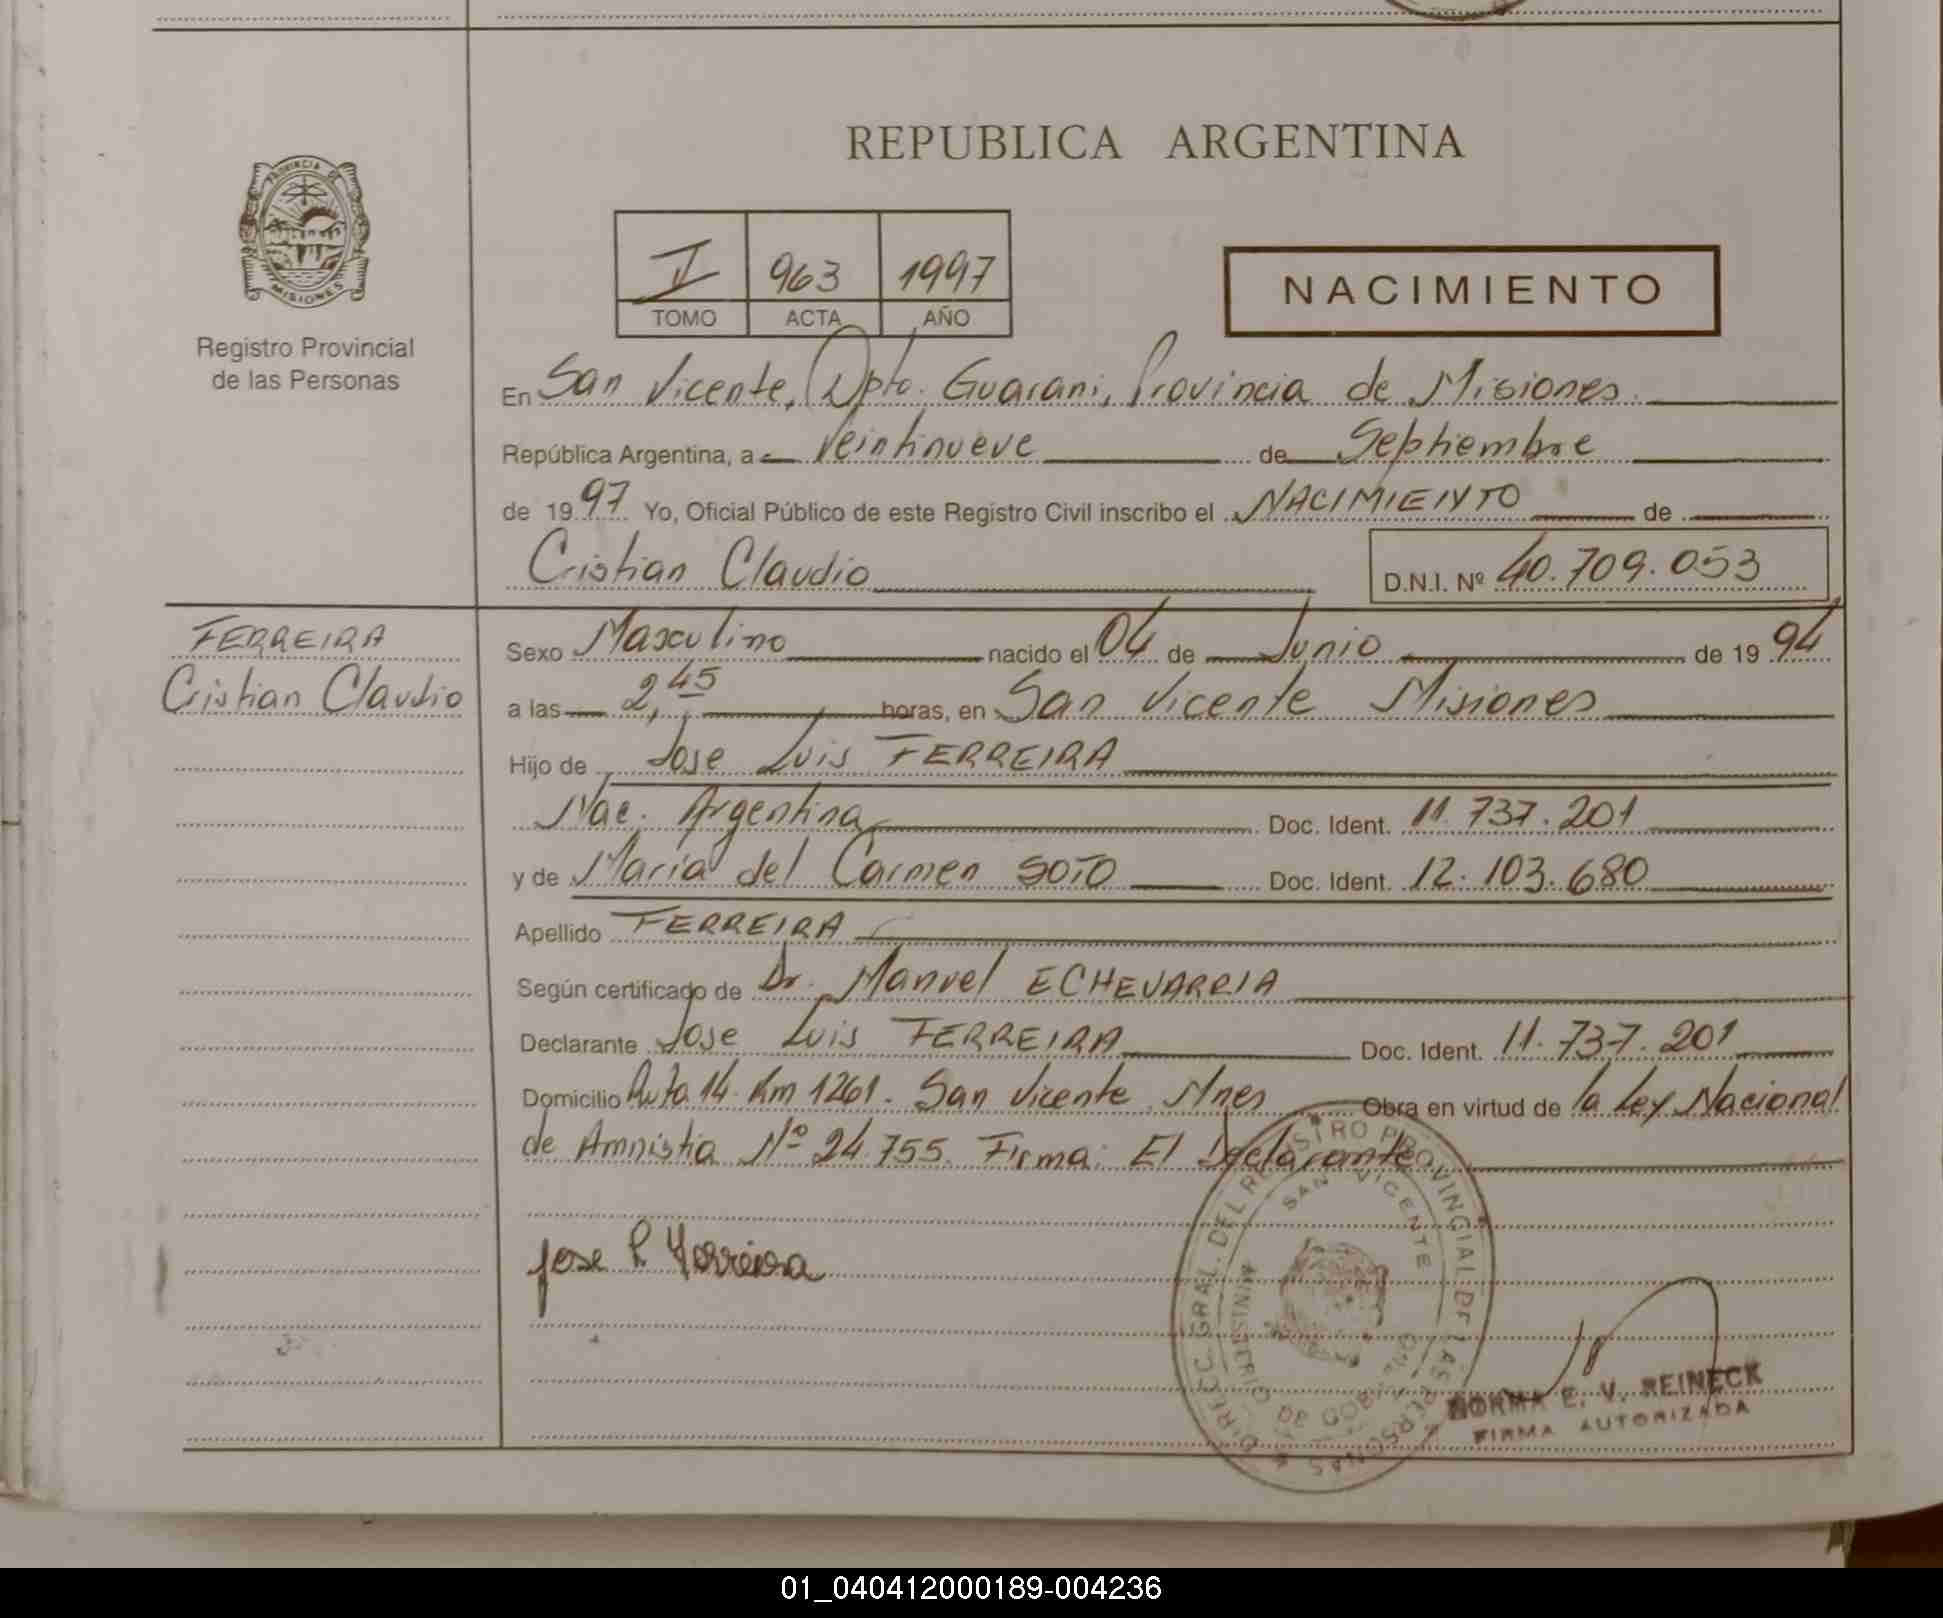 REPUBLICA ARGENTINA
PROVINCIA DE
MISIONES
Registro Provincial
de las Personas
963 1997
TOMO ACTA AÑO
NACIMIENTO
En San Vicente, Dpto. Guarani, Provincia de Misiones.
República Argentina, a Veintinueve de Septiembre
de 1997 Yo, Oficial Público de este Registro Civil inscribo el NACIMIENTO de
Cristian Claudio
D.N.I. Nº 40.709.053
FERREIRA
Cristian Claudio
Sexo Masculino nacido el 04 de Junio de 1994
a las 2,45 horas, en San Vicente Misiones
Hijo de Jose Luis FERREIRA
Nac. Argentina Doc. Ident. 11.737.201
y de Maria del Carmen SOTO Doc. Ident. 12.103.680
Apellido FERREIRA
Según certificado de Dr. Manuel ECHEVARRIA
Declarante Jose Luis FERREIRA Doc. Ident. 11.737.201
Domicilio Ruta 14 Km 1261. San Vicente Mnes Obra en virtud de la Ley Nacional
de Amnistia Nº 24.755. Firma: El Declarante
Jose L Ferreira
DIREC. GRAL. DEL REGISTRO PROVINCIAL DE LAS PERSONAS
SAN VICENTE
MINISTERIO DE GOBIERNO
NORMA E. V. REINECK
FIRMA AUTORIZADA
01_040412000189-004236